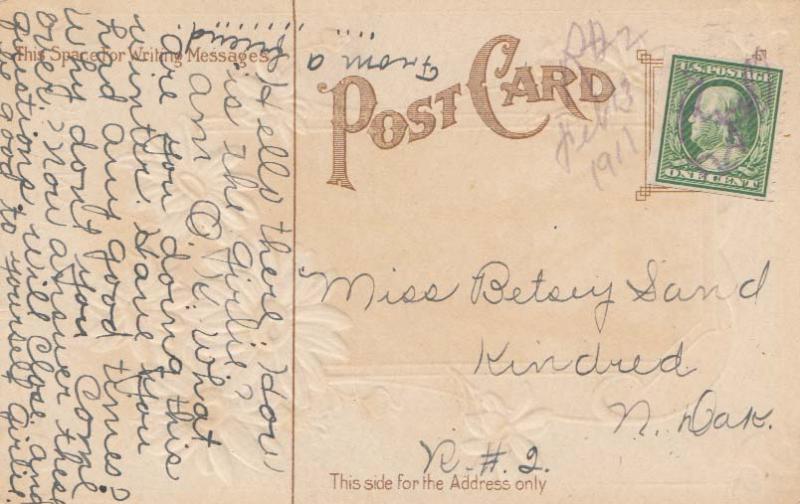 This Space for Writing Messages
POST CARD
Feb 13
1911
U.S. POSTAGE
ONE CENT
Hello there. How
is the Girlie?
am O.K. What
are you doing this
winter. Have you
had any good times?
Why don't you Come
over? Now answer these
questions will close and
be good to yourself Girlie
From a
friend
Miss Betsey Sand
Kindred
N. Dak.
R.#.2.
This side for the Address only